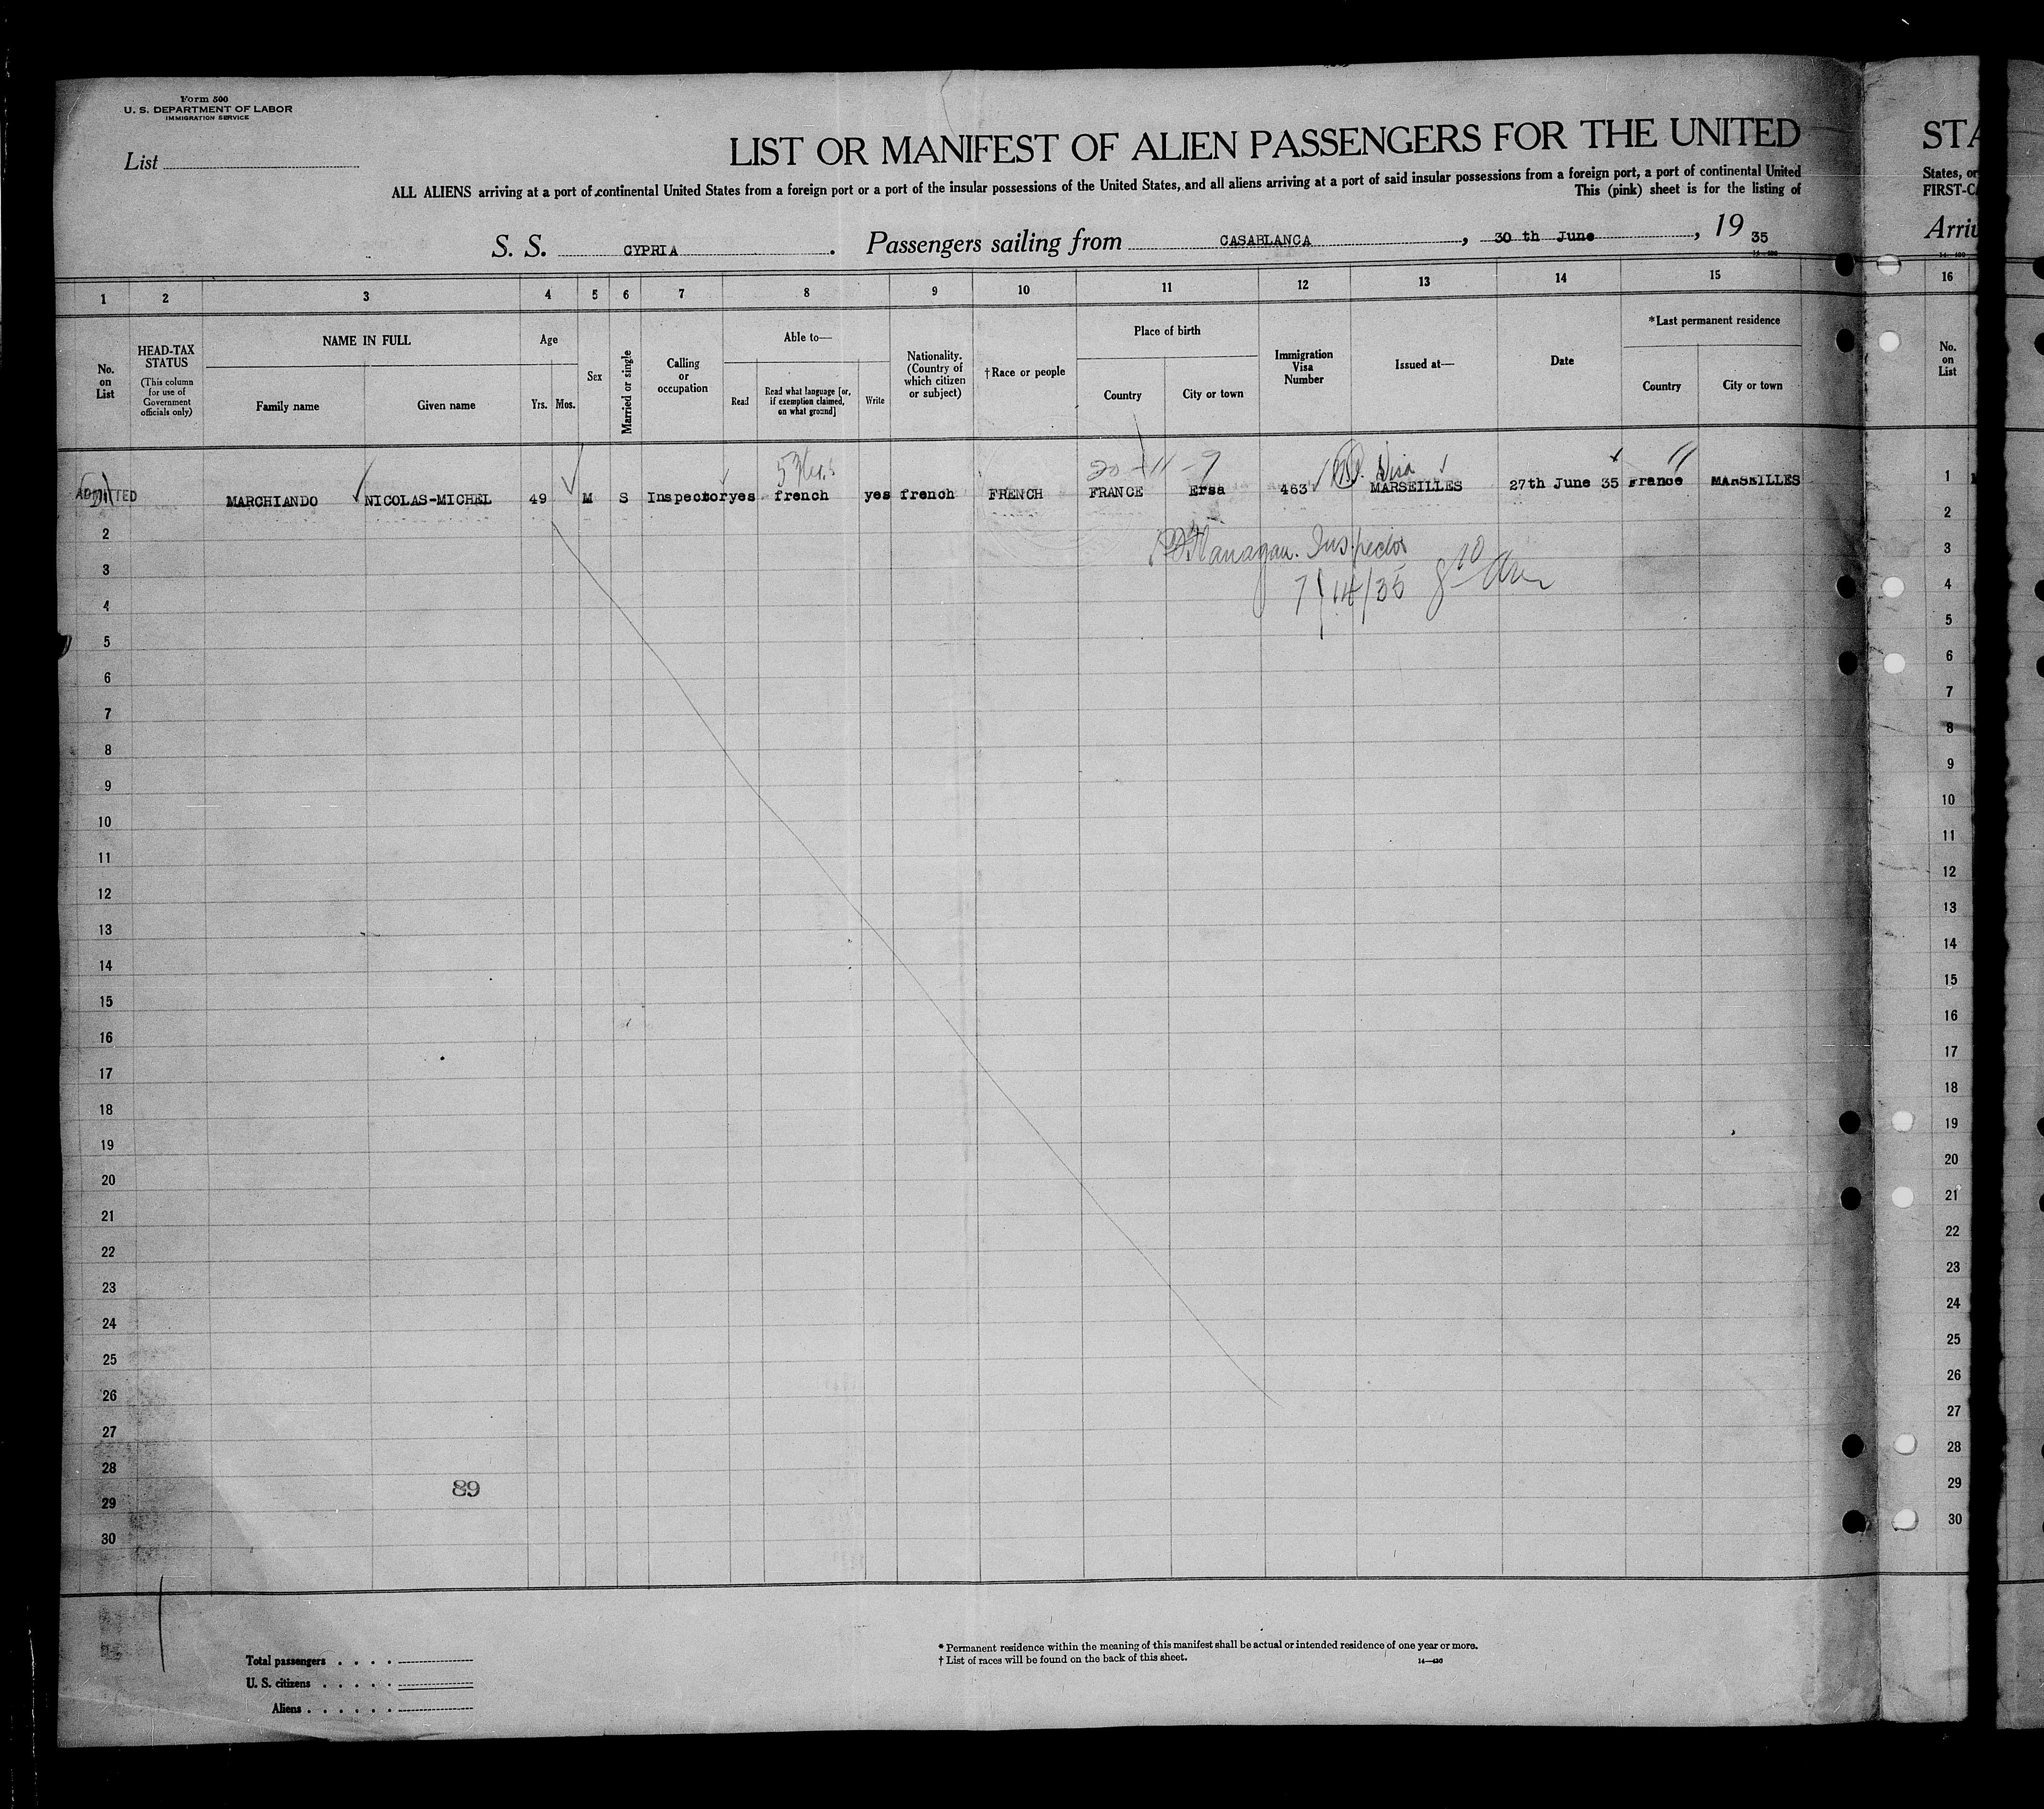 Form 500
U. S. DEPARTMENT OF LABOR
IMMIGRATION SERVICE
List
LIST OR MANIFEST OF ALIEN PASSENGERS FOR THE UNITED
ALL ALIENS arriving at a port of continental United States from a foreign port or a port of the insular possessions of the United States, and all aliens arriving at a port of said insular possessions from a foreign port, a port of continental United
This (pink) sheet is for the listing of
S. S. CYPRIA. Passengers sailing from CASABLANCA, 30 th June, 19 35
STA
States, or
FIRST-CA
Arriv
1 2 3 4 5 6 7 8 9 10 11 12 13 14 15 16
No. on List
HEAD-TAX STATUS
(This column for use of Government officials only)
NAME IN FULL
Family name
Given name
Age
Yrs.
Mos.
Sex
Married or single
Calling or occupation
Able to—
Read
Read what language [or, if exemption claimed, on what ground]
Write
Nationality. (Country of which citizen or subject)
†Race or people
Place of birth
Country
City or town
Immigration Visa Number
Issued at—
Date
*Last permanent residence
Country
City or town
No. on List
20-11-9
Visa
ADMITTED MARCHIANDO NICOLAS-MICHEL 49 M S Inspector yes french yes french FRENCH FRANCE Ersa 463 MARSEILLES 27th June 35 France MARSEILLES 1
Flanagan. Inspector
7/14/35
2 2
3 3
4 4
5 5
6 6
7 7
8 8
9 9
10 10
11 11
12 12
13 13
14 14
15 15
16 16
17 17
18 18
19 19
20 20
21 21
22 22
23 23
24 24
25 25
26 26
27 27
28 28
29 29
30 30
89
Total passengers
U. S. citizens
Aliens
* Permanent residence within the meaning of this manifest shall be actual or intended residence of one year or more.
† List of races will be found on the back of this sheet.